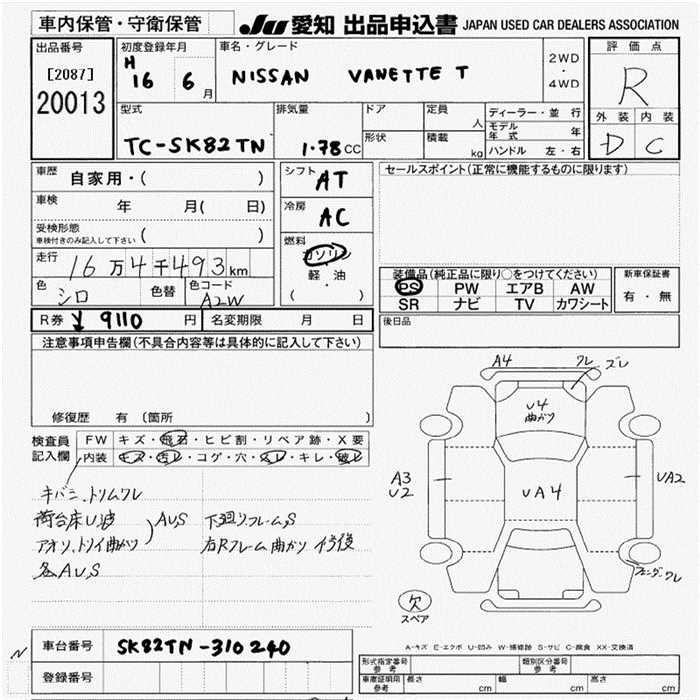 車内保管・守衛保管 JU 愛知 出品申込書 JAPAN USED CAR DEALERS ASSOCIATION
出品番号 [2087] 20013
初度登録年月 H 16 6 月
車名・グレード NISSAN VANETTE T
2WD・4WD
評価点 R
外装 内装
D C
型式 TC-SK82TN
排気量 1.78 CC
ドア
形状
定員 人
積載 kg
ディーラー・並行
モデル年式 年
ハンドル 左・右
車歴 自家用・( )
車検 年 月( 日)
受検形態 車検付きのみ記入して下さい ( )
走行 16万4千493km
色 シロ 色替 色コード A2W
シフト AT
冷房 AC
燃料 ガソリン 軽油 ( )
セールスポイント(正常に機能するものに限ります)
装備品(純正品に限り○をつけてください)
PS PW エアB AW
SR ナビ TV カワシート
新車保証書 有・無
R券 ¥9110 円 名変期限 月 日
後日品
注意事項申告欄(不具合内容等は具体的に記入して下さい)
修復歴 有 (箇所 )
検査員記入欄
FW キズ・飛石・ヒビ割・リペア跡・X要
内装 キズ・汚レ・コゲ・穴・スレ・キレ・破レ
キバミ、トリムワレ
荷台床U、波 AU、S
アオリ、トリイ曲がり
各AU、S
下廻りフレームS
右Rフレーム曲がり
A4 ワレ ズレ
U4 曲がり
A3 U2
UA4
UA2
ワレ
欠
スペア
A-キズ E-エクボ U-凹み W-補修跡 S-サビ C-腐食 XX-交換済
車台番号 SK82TN-310240
登録番号
N
形式指定番号 参考 類別区分番号 参考
車庫証明用 参考 長さ cm 幅 cm 高さ cm